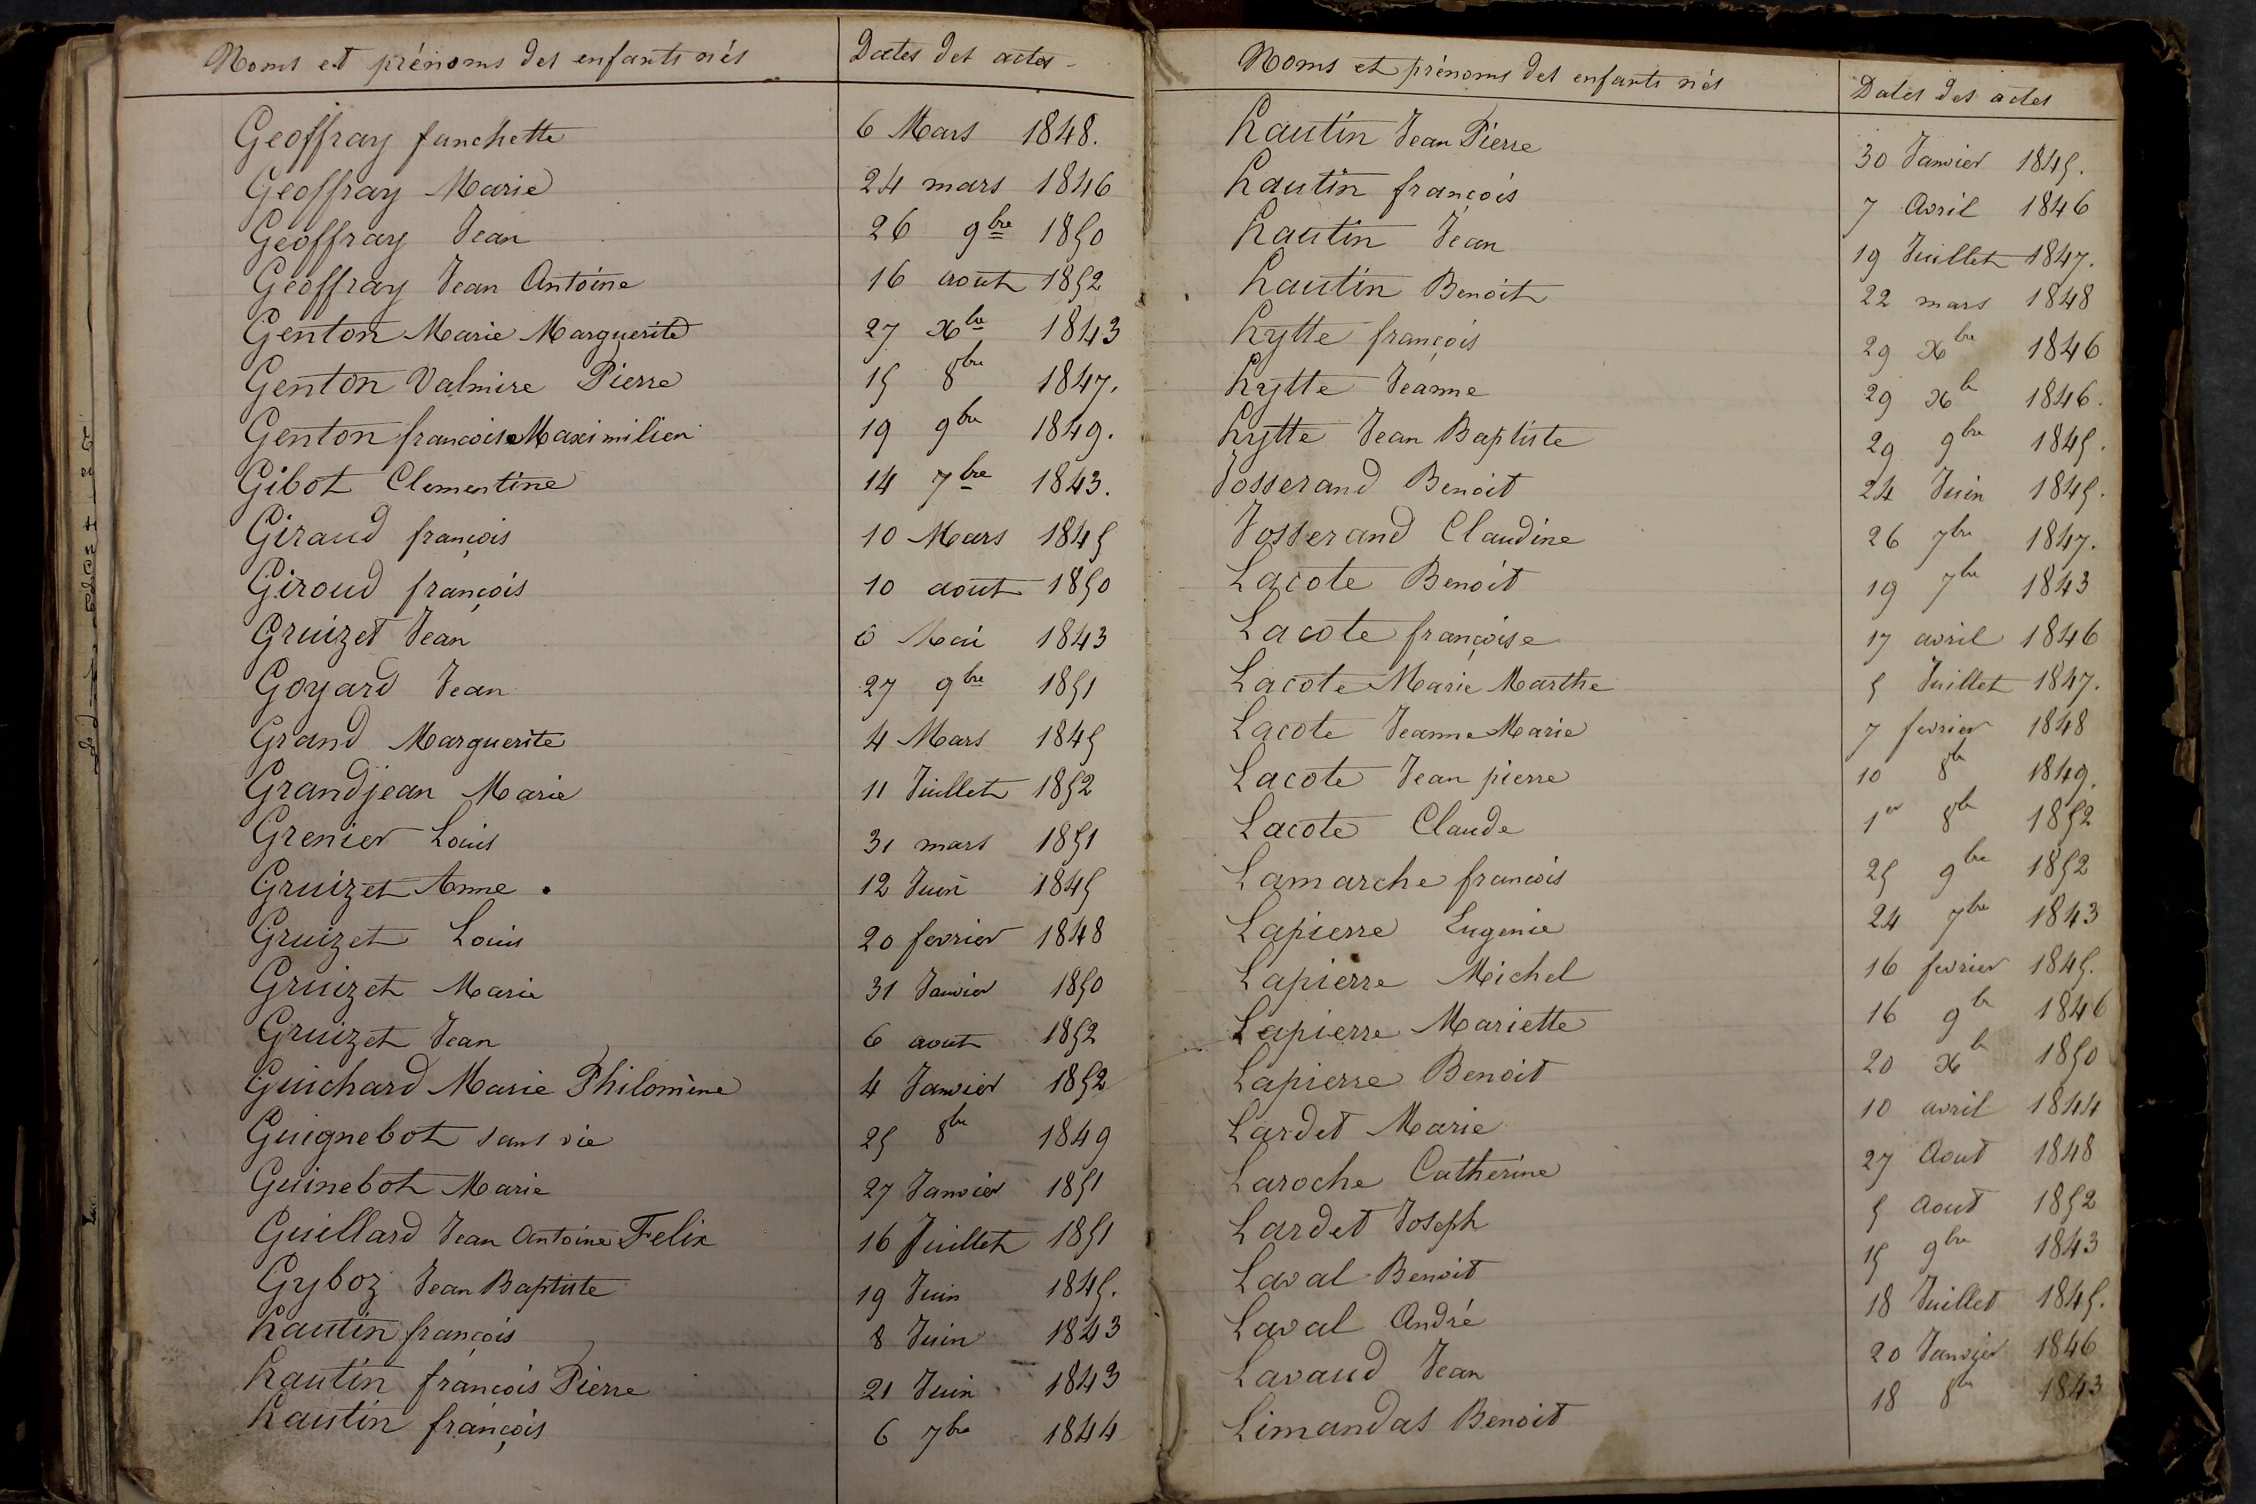 Noms et prénoms des enfants nés Dates des actes
Geoffray fanchette 6 Mars 1848.
Geoffray Marie 24 mars 1846
Geoffray Jean 26 9bre 1850
Geoffray Jean Antoine 16 aout 1852
Genton Marie Marguerite 27 Xbre 1843
Genton Valmire Pierre 15 8bre 1847.
Genton francoise Maximilien 19 9bre 1849.
Gibot Clementine 14 7bre 1843.
Giraud françois 10 Mars 1845
Giroud françois 10 aout 1850
Gruizet Jean 6 Mai 1843
Goyard Jean 27 9bre 1851
Grand Marguerite 4 Mars 1845
Grandjean Marie 11 Juillet 1852
Grenier Louis 31 mars 1851
Gruizet Anne. 12 Juin 1845
Gruizet Louis 20 fevrier 1848
Gruizet Marie 31 Janvier 1850
Gruizet Jean 6 aout 1852
Guichard Marie Philomène 4 Janvier 1852
Guignebot sans vie 25 8bre 1849
Guinebot Marie 27 Janvier 1851
Guillard Jean Antoine Felix 16 Juillet 1851
Gyboz Jean Baptiste 19 Juin 1845.
hautin françois 8 Juin 1843
hautin françois Pierre 21 Juin 1843
hautin françois 6 7bre 1844
Noms et prénoms des enfants nés Dates des actes
hautin Jean Pierre 30 Janvier 1845.
hautin françois 7 Avril 1846
hautin Jean 19 Juillet 1847.
hautin Benoit 22 mars 1848
hytte françois 29 Xbre 1846
hytte Jeanne 29 Xbre 1846.
hytte Jean Baptiste 29 9bre 1845.
Josserand Benoit 24 Juin 1845.
Josserand Claudine 26 7bre 1847.
Lacote Benoit 19 7bre 1843
Lacote françoise 17 avril 1846
Lacote Marie Marthe 5 Juillet 1847.
Lacote Jeanne Marie 7 fevrier 1848
Lacote Jean pierre 10 8bre 1849.
Lacote Claude 1er 8bre 1852
Lamarche francois 25 9bre 1852
Lapierre Eugenie 24 7bre 1843
Lapierre Michel 16 fevrier 1845.
Lapierre Mariette 16 9bre 1846
Lapierre Benoit 20 Xbre 1850
Lardet Marie 10 avril 1844
Laroche Catherine 27 Aout 1848
Lardet Joseph 5 Aout 1852
Laval Benoit 15 9bre 1843
Laval André 18 Juillet 1845.
Lavaud Jean 20 Janvier 1846
Limandas Benoit 18 8bre 1843